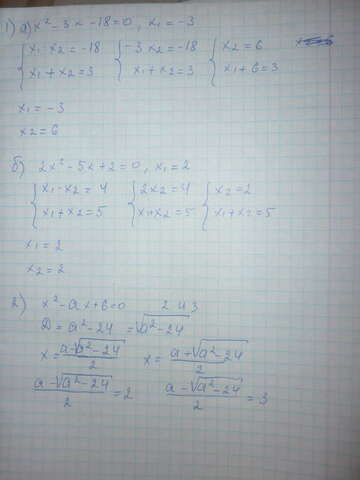 1) а) x² - 3x - 18 = 0, x₁ = -3
{ x₁ · x₂ = -18 { -3x₂ = -18 { x₂ = 6
{ x₁ + x₂ = 3 { x₁ + x₂ = 3 { x₁ + 6 = 3
x₁ = -3
x₂ = 6
б) 2x² - 5x + 2 = 0, x₁ = 2
{ x₁ · x₂ = 4 { 2x₂ = 4 { x₂ = 2
{ x₁ + x₂ = 5 { x₁ + x₂ = 5 { x₁ + x₂ = 5
x₁ = 2
x₂ = 2
2) x² - ax + 6 = 0 2 и 3
D = a² - 24 = √a² - 24
x = (a - √a² - 24)/2 x = (a + √a² - 24)/2
(a - √a² - 24)/2 = 2 (a - √a² - 24)/2 = 3